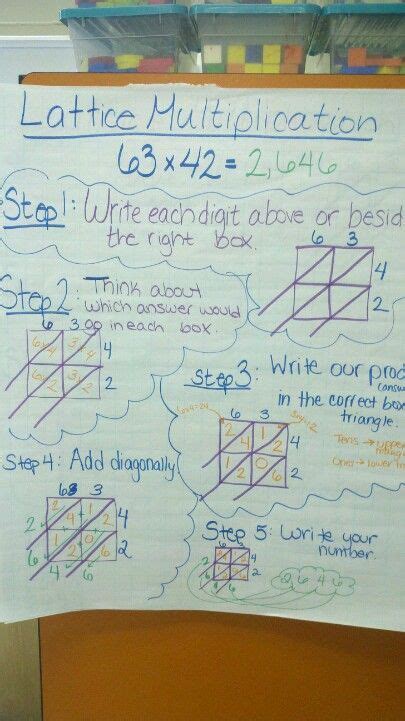 Lattice Multiplication
63 x 42 = 2,646
Step 1: Write each digit above or besid
the right box.
6 3
4
2
Step 2: Think about
which answer would
go in each box.
6 3
6x4 3x4 4
6x2 3x2 2
Step 3: Write our prod
in the correct box
triangle.
6x4=24
6 3
2 4 1 2 4
1 2 0 6 2
Tens → upper
Ones → lower
Step 4: Add diagonally
6 3
2 4 1 2 4
2
1 2 0 6 2
6
4 6
Step 5: Write your
number.
6
4
2
2
6
4 6
2,646